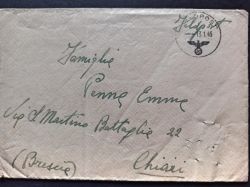 Feldpost
13.1.45
Famiglia
Penna Emma
Via S. Martino Battaglia 22
(Brescia) Chiari